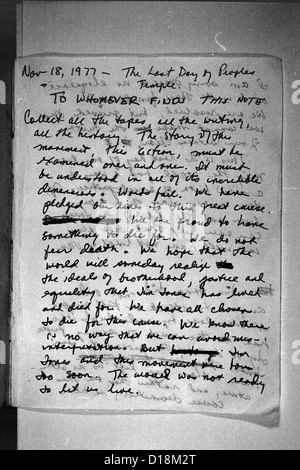 Nov 18, 1977 - The Last Day of Peoples
Temple
TO WHOMEVER FINDS THIS NOTE
Collect all the tapes, all the writing,
all the history. The story of this
movement, this action, must be
examined over and over. It must
be understood in all of its incredible
dimensions. Words fail. We have
pledged our lives to this great cause.
We are proud to have
something to die for. We do not
fear death. We hope that the
world will someday realize
the ideals of brotherhood, justice and
equality that Jim Jones has lived
and died for. We have all chosen
to die for this cause. We know there
is no way that we can avoid mis-
interpretation. But Jim
Jones and this movement were born
too soon. The world was not ready
to let us live.
alamy
D18M2T